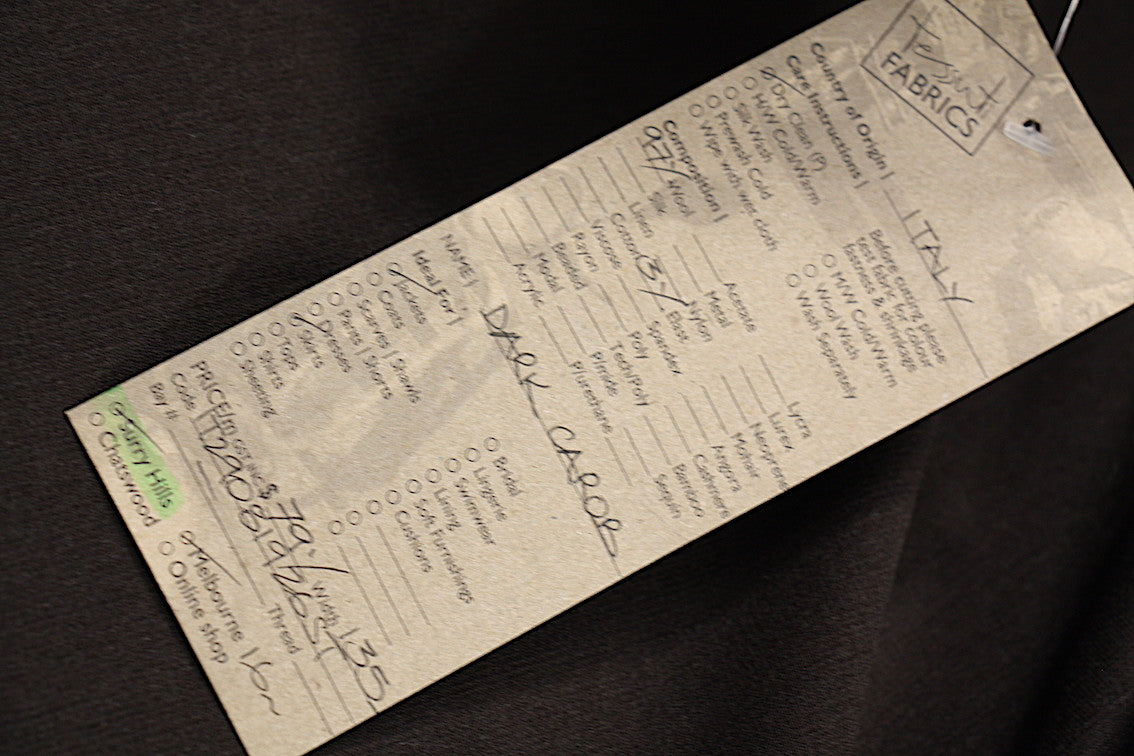 Tessuti
FABRICS
Country of Origin | ITALY
Care Instructions |
Dry Clean (P)
H/W Cold/Warm
Silk Wash
Prewash Cold
Wipe with wet cloth
Before cutting please
test fabric for colour
fastness & shrinkage
M/W Cold/Warm
Wool Wash
Wash Separately
Composition |
97% Wool
Silk
Linen
Cotton
Viscose
Rayon
Beaded
Modal
Acrylic
Acetate
Metal
Nylon
3% Elast
Spandex
Poly
Tech/Poly
Pinode
Plurethane
Lycra
Lurex
Neoprene
Mohair
Angora
Cashmere
Bamboo
Sequin
NAME | DARK CAROB
Ideal For |
Jackets
Coats
Scarves | Shawls
Pants | Shorts
Dresses
Skirts
Tops
Shirts
Sheeting
Bridal
Lingerie
Swimwear
Lining
Soft Furnishings
Cushions
PRICE/m GST INC $ 79. Width 135
Code
Bay #:
Thread
Surry Hills
Chatswood
Melbourne 16m
Online shop